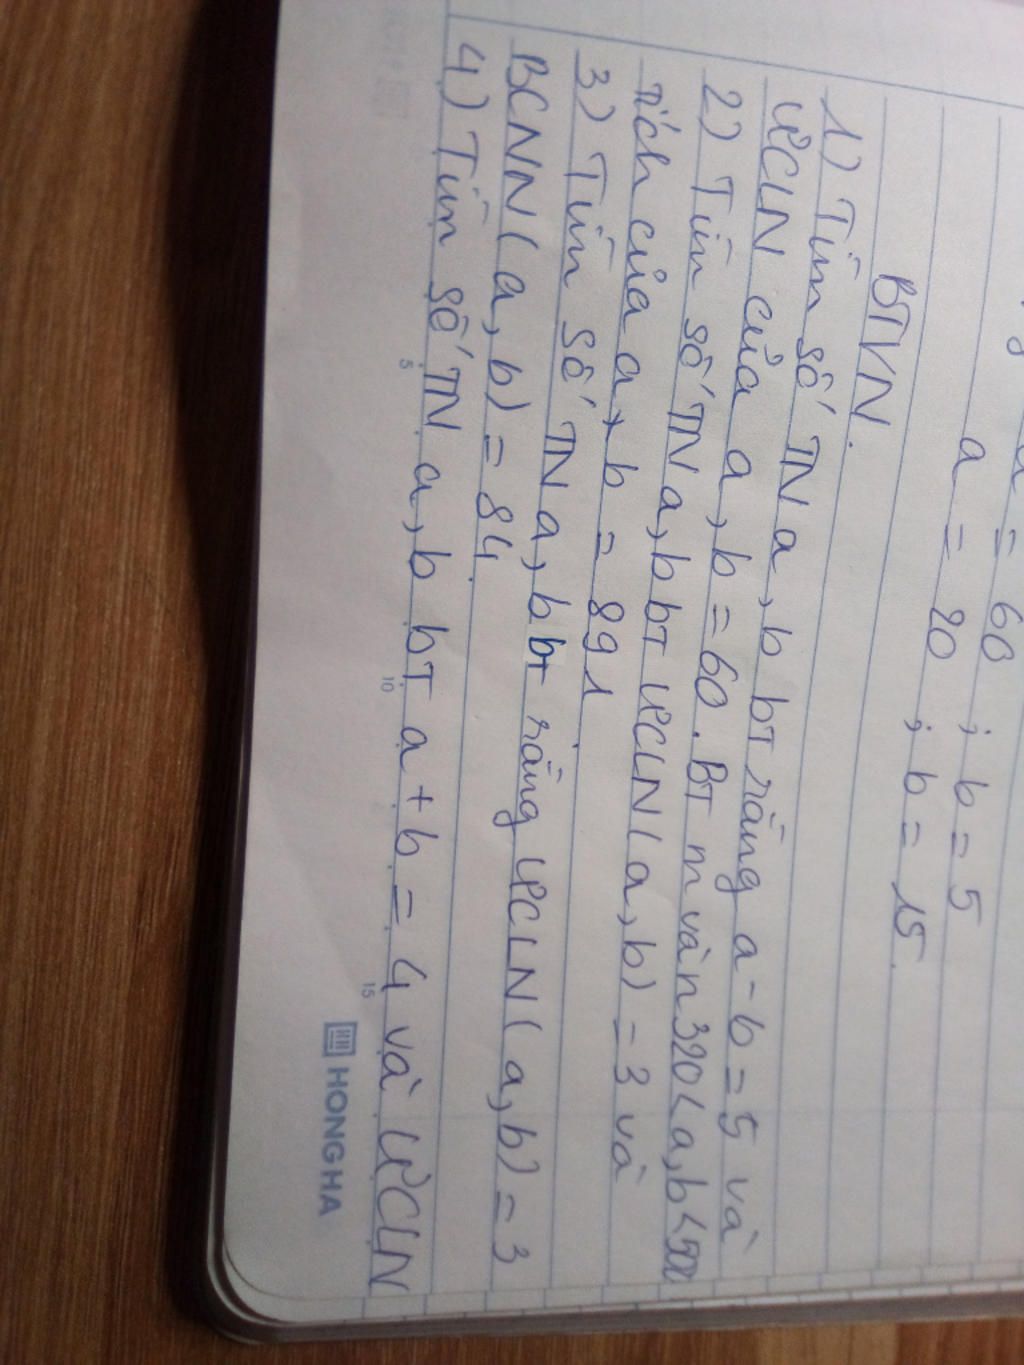 a = 60 ; b = 5
a = 20 ; b = 15.
BTVN.
1) Tìm số TN a, b bT rằng a - b = 5 và
ƯCLN của a, b = 60. BT m và n 320 < a, b < 500
2) Tìm số TN a, b bT ƯCLN (a, b) = 3 và
tích của a x b = 891
3) Tìm số TN a, b bT rằng ƯCLN (a, b) = 3
BCNN (a, b) = 84.
4) Tìm số TN a, b bT a + b = 4 và ƯCLN
5 10 15
HONG HA